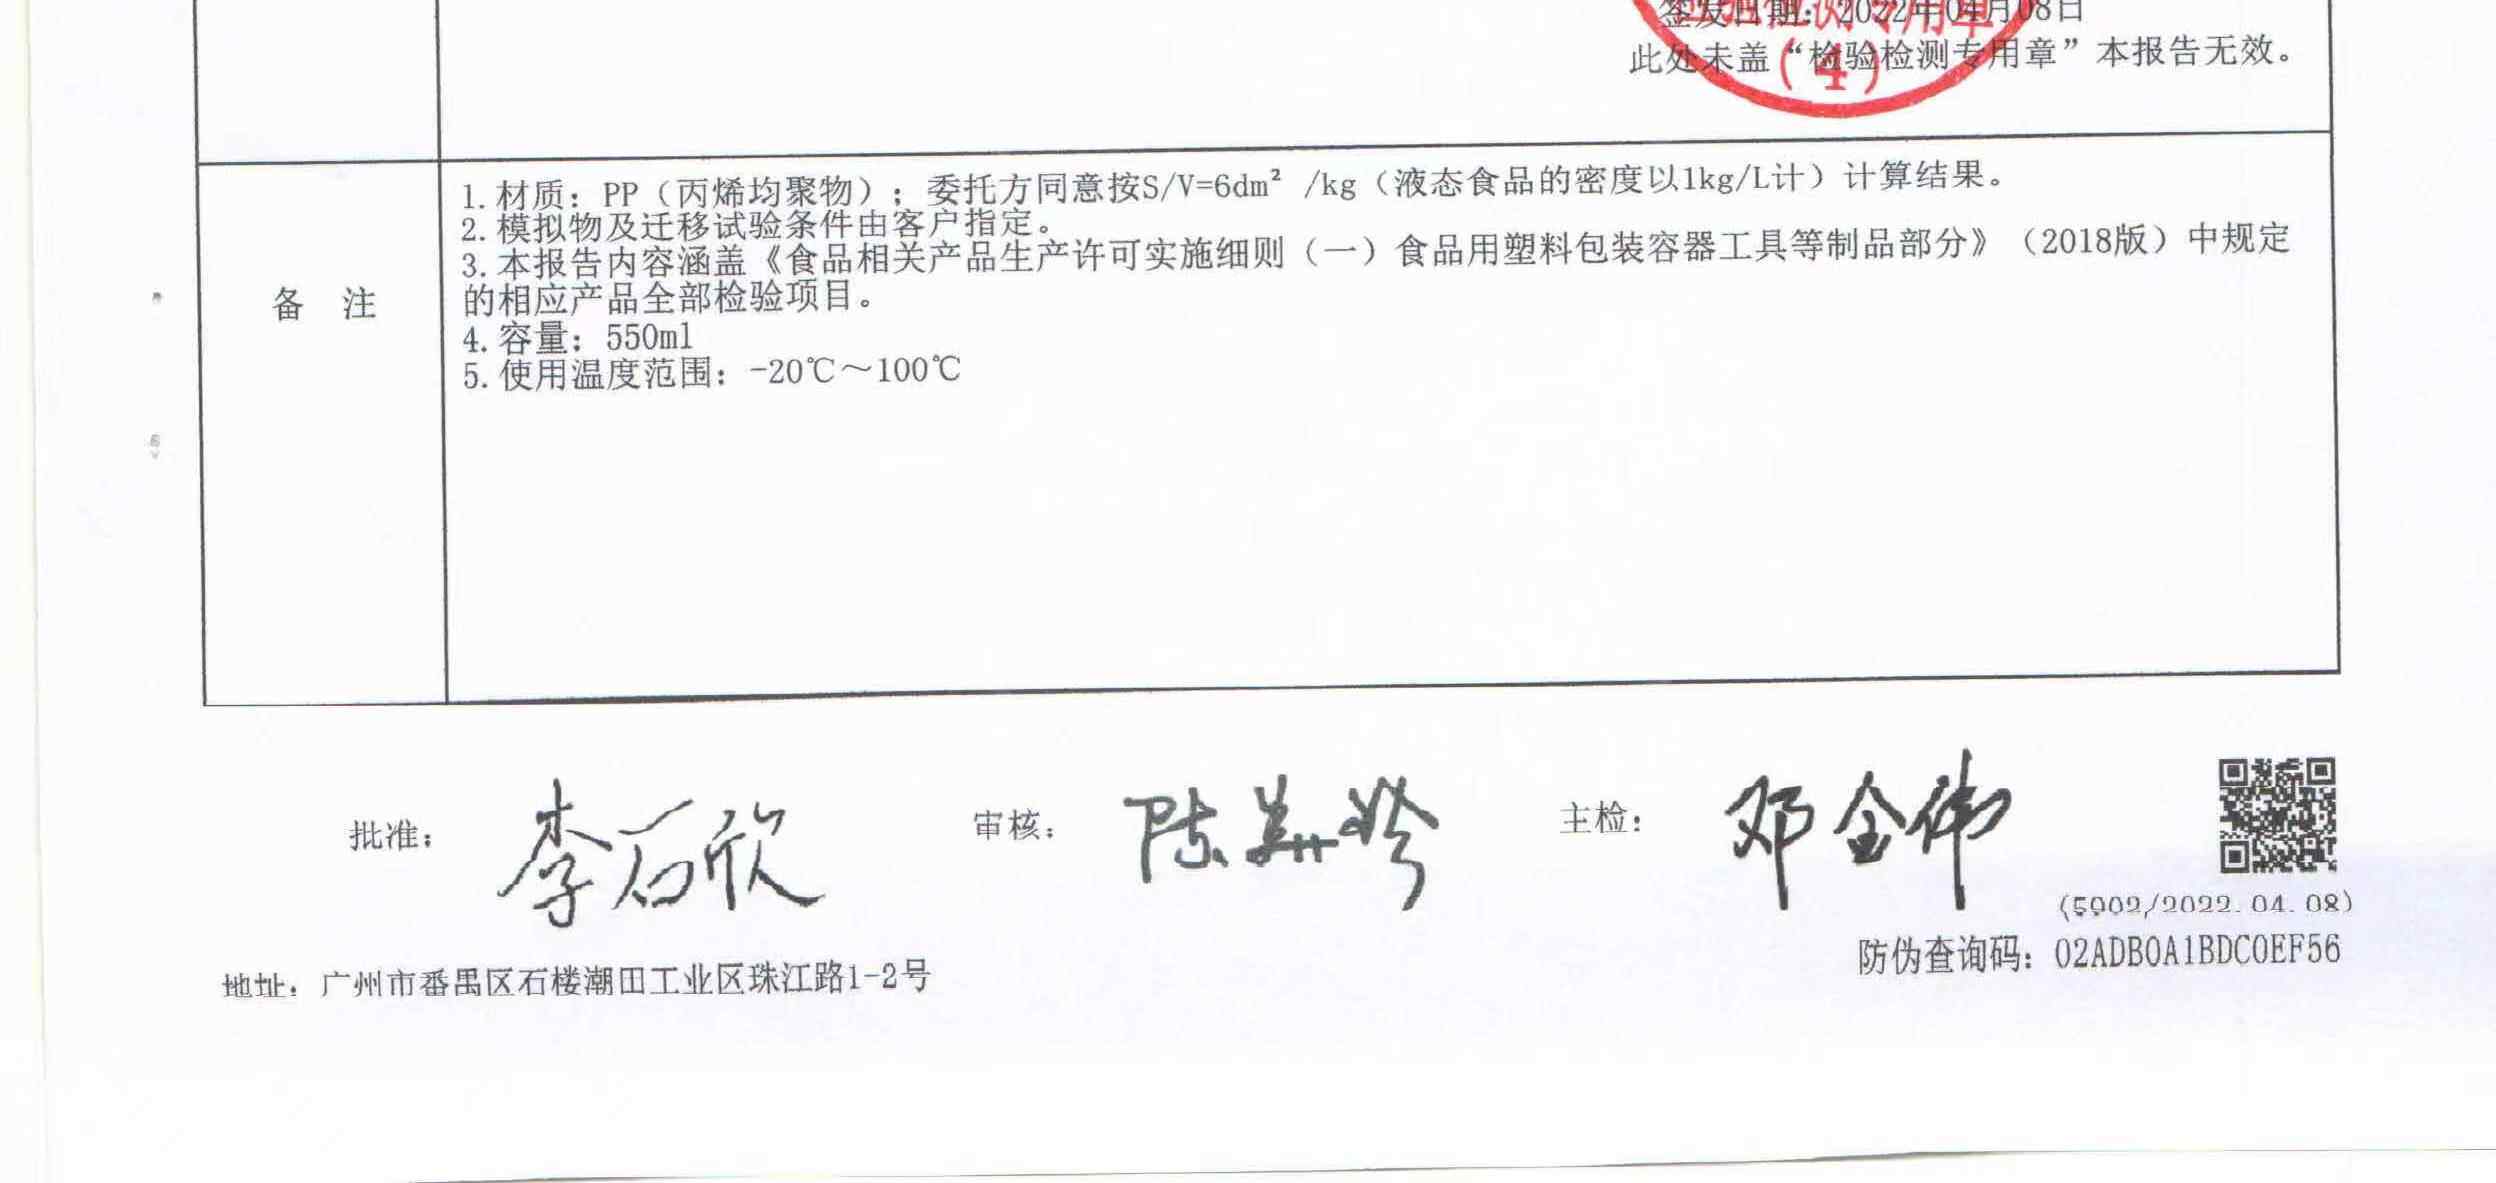 签发日期：2022年04月08日
此处未盖“检验检测专用章”本报告无效。
（4）
备 注
1.材质：PP（丙烯均聚物）；委托方同意按S/V=6dm² /kg（液态食品的密度以1kg/L计）计算结果。
2.模拟物及迁移试验条件由客户指定。
3.本报告内容涵盖《食品相关产品生产许可实施细则（一）食品用塑料包装容器工具等制品部分》（2018版）中规定
的相应产品全部检验项目。
4.容量：550ml
5.使用温度范围：-20℃～100℃
批准： 李石欣 审核： 陈 主检： 邓金伟
(5902/2022.04.08)
防伪查询码：02ADB0A1BDC0EF56
地址：广州市番禺区石楼潮田工业区珠江路1-2号